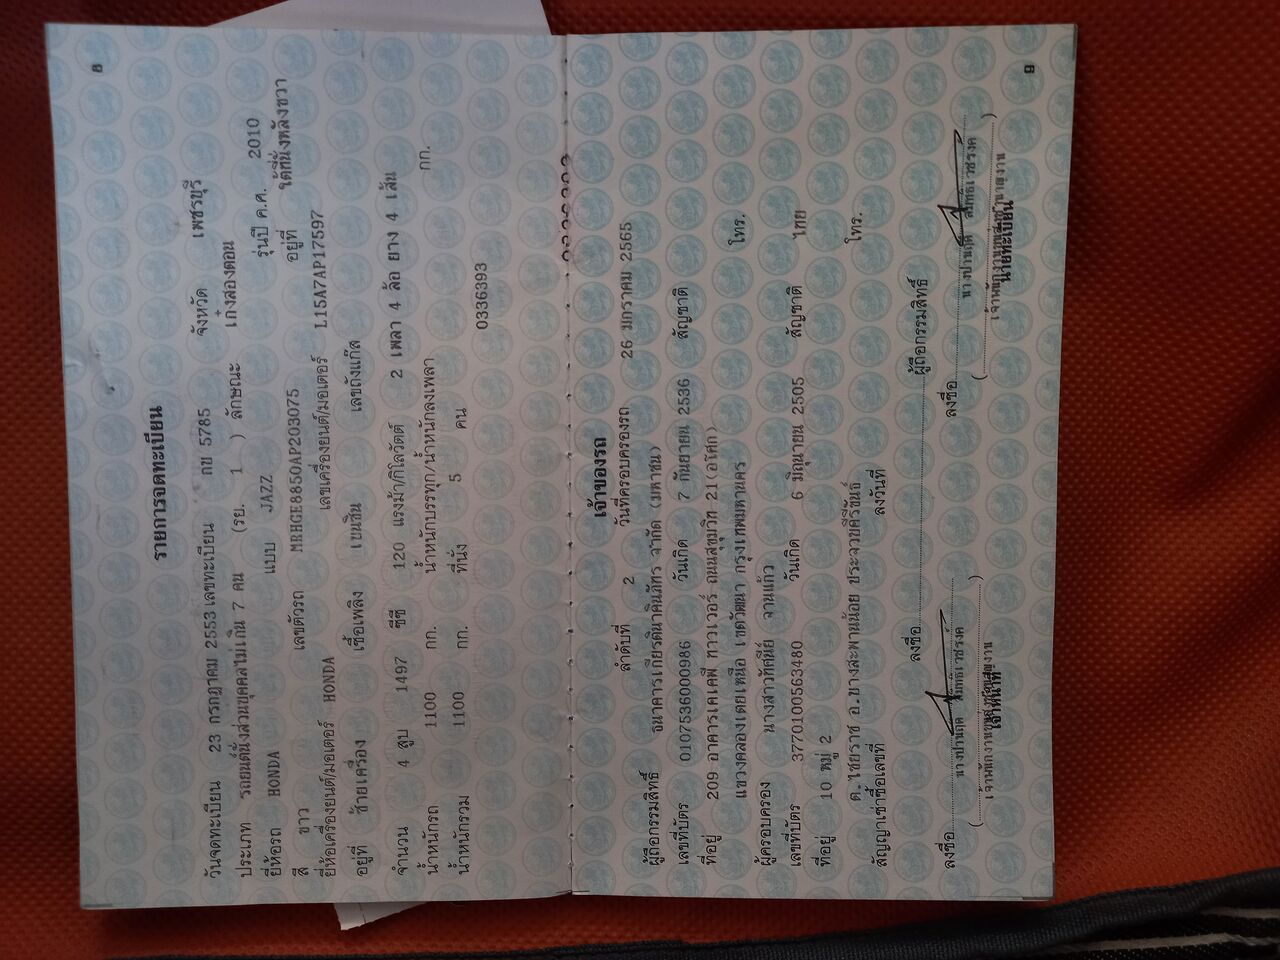 8
รายการจดทะเบียน
วันจดทะเบียน 23 กรกฎาคม 2553 เลขทะเบียน กข 5785 จังหวัด เพชรบุรี
ประเภท รถยนต์นั่งส่วนบุคคลไม่เกิน 7 คน (รย. 1 ) ลักษณะ เก๋งสองตอน
ยี่ห้อรถ HONDA แบบ JAZZ รุ่นปี ค.ศ. 2010
สี ขาว เลขตัวรถ MRHGE8850AP203075 อยู่ที่ ใต้ที่นั่งหลังขวา
ยี่ห้อเครื่องยนต์/มอเตอร์ HONDA เลขเครื่องยนต์/มอเตอร์ L15A7AP17597
อยู่ที่ ซ้ายเครื่อง เชื้อเพลิง เบนซิน เลขถังแก๊ส
จำนวน 4 สูบ 1497 ซีซี 120 แรงม้า/กิโลวัตต์ 2 เพลา 4 ล้อ ยาง 4 เส้น
น้ำหนักรถ 1100 กก. น้ำหนักบรรทุก/น้ำหนักลงเพลา กก.
น้ำหนักรวม 1100 กก. ที่นั่ง 5 คน
0336393
9
เจ้าของรถ
ลำดับที่ 2 วันที่ครอบครองรถ 26 มกราคม 2565
ผู้ถือกรรมสิทธิ์ ธนาคารเกียรตินาคินภัทร จำกัด (มหาชน)
เลขที่บัตร 0107536000986 วันเกิด 7 กันยายน 2536 สัญชาติ
ที่อยู่ 209 อาคารเคเคพี ทาวเวอร์ ถนนสุขุมวิท 21(อโศก) โทร.
แขวงคลองเตยเหนือ เขตวัฒนา กรุงเทพมหานคร
ผู้ครอบครอง นางสาวทัศนีย์ จานแก้ว
เลขที่บัตร 3770100563480 วันเกิด 6 มิถุนายน 2505 สัญชาติ ไทย
ที่อยู่ 10 หมู่ 2 โทร.
ต.ไชยราช อ.บางสะพานน้อย ประจวบคีรีขันธ์
สัญญาเช่าซื้อเลขที่ ลงวันที่
ลงชื่อ ผู้ถือกรรมสิทธิ์
ลงชื่อ ลงชื่อ
( ) ( )
เจ้าพนักงานขนส่งชำนาญงาน เจ้าพนักงานขนส่งชำนาญงาน
เจ้าหน้าที่ นายทะเบียน